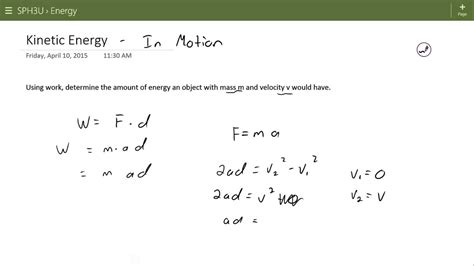 SPH3U › Energy
+
Page
Kinetic Energy - In Motion
Friday, April 10, 2015 11:30 AM
Using work, determine the amount of energy an object with mass m and velocity v would have.
W = F · d
W = m · a d
= m ad
F = m a
2ad = v₂² - v₁²
2ad = v²
ad =
v₁ = 0
v₂ = v